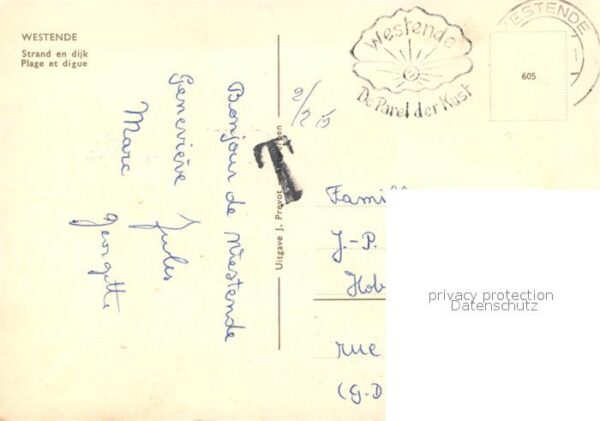 WESTENDE
Strand en dijk
Plage et digue
Westende
De Parel der Kust
WESTENDE
1
605
Bonjour de Westende
Geneviève Jules
Marc Georgette
2/2 b
T
Uitgave J. Prevot
Famill
J.-P.
Hob
rue
(G.D
privacy protection
Datenschutz